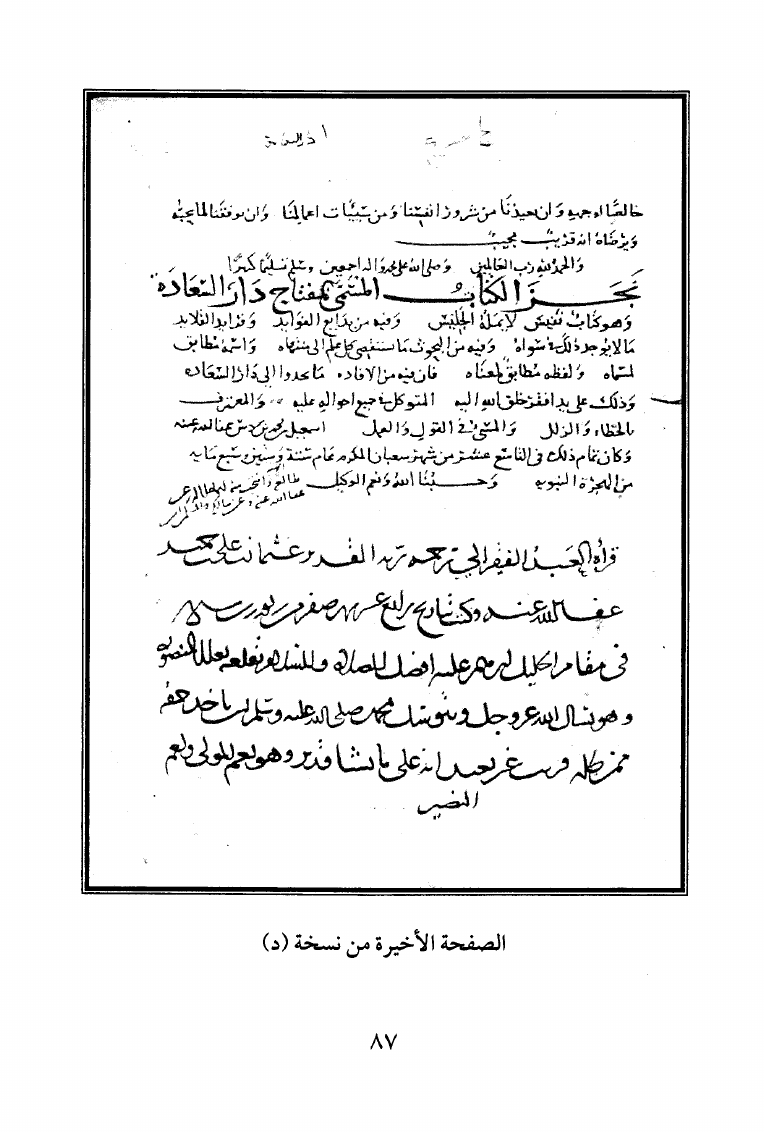 خالصا لوجهه وان يعيذنا من شرور انفسنا ومن سيئات اعمالنا وان يوفقنا لما يحبه
ويرضاه انه قريب مجيب
والحمد لله رب العالمين وصلى الله على محمد واله اجمعين وسلم تسليما كثيرا
نجز الكتاب المسمى بمفتاح دار السعادة
وهو كتاب نفيس لا يمله الجليس وفيه من بدايع الفوايد وفرايد القلايد
ما لا يوجد ذلك في سواه وفيه من البحوث ما يستقصي كل علم الى منتهاه واسمه مطابق
لمسماه ولفظه مطابق لمعناه فان فيه من الافاده ما يحدوا الى دار السعاده
وذلك على يد افقر خلق الله اليه المتوكل في جميع احواله عليه والمعترف
بالخطاء والزلل والمسيء في القول والعمل اسمعيل بن محمد بن بردس عفا الله عنه
وكان تمام ذلك في التاسع عشر من شهر شعبان المكرم عام ستة وستين وسبع مايه
من الهجرة النبويه وحسبنا الله ونعم الوكيل
قرأه العبد الفقير الى رحمة ربه القدير عثمان
عفا الله عنه
في مقام عليه افضل الصلاة
وهو يسال الله عز وجل ويتوسل بمحمد صلى الله عليه وسلم ان ياخذ حقه
ممن ظلمه قريب غير بعيد انه على ما يشا قدير وهو نعم المولى ونعم
النصير
الصفحة الأخيرة من نسخة (د)
٨٧